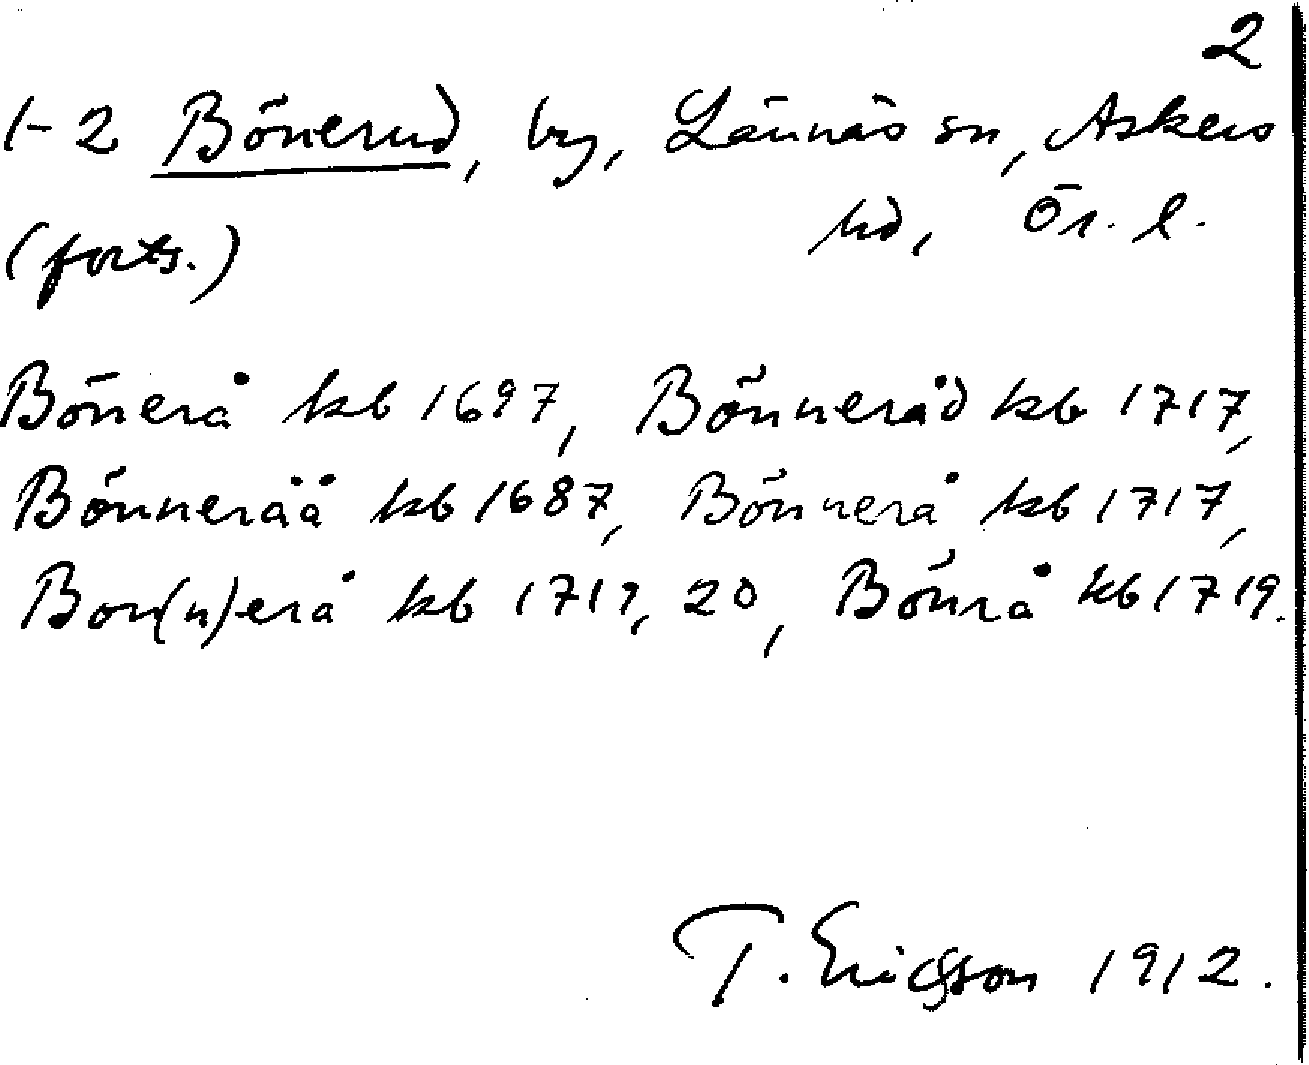 2
1-2 Bönerud, by, Lännäs sn, Askers
(forts.) hd, Ör. l.
Bönerå kb 1697, Bönneråd kb 1717,
Bönneråå kb 1687, Bönnerå kb 1717,
Bon(n)erå kb 1717, 20, Bönrå kb 1719.
T. Ericsson 1912.